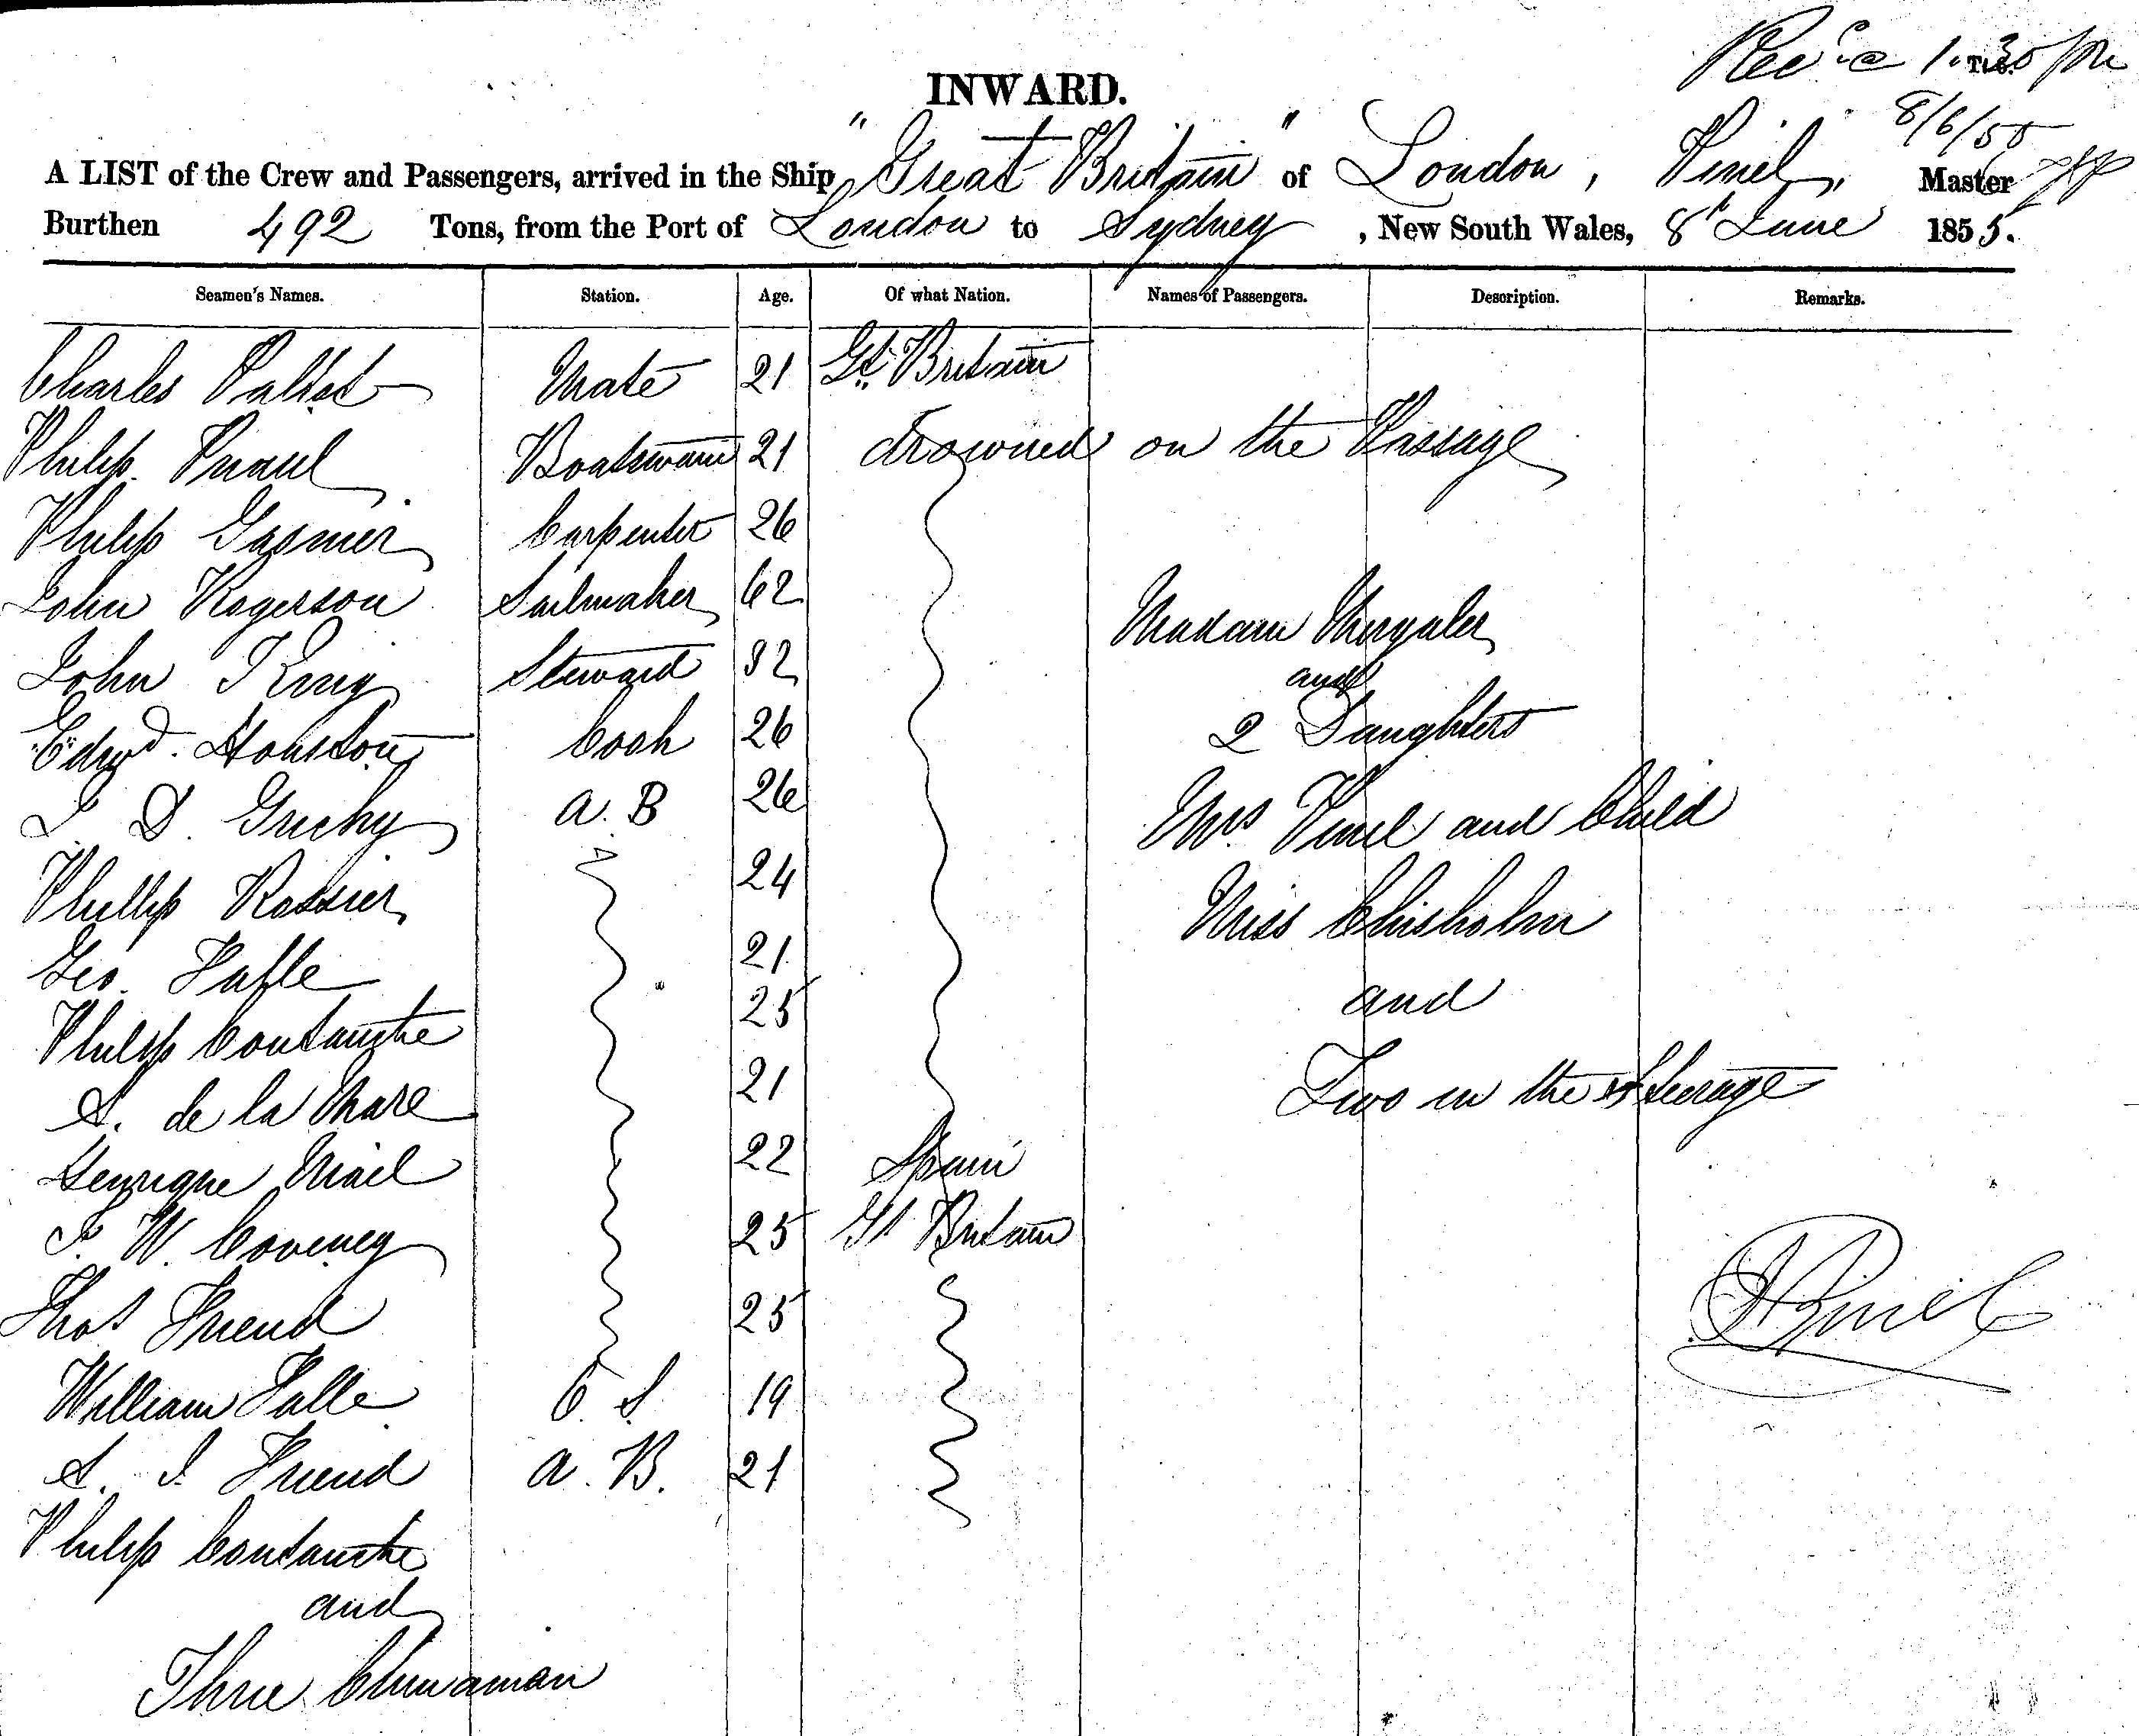 Recd @ 1.30 pm
8/6/55
INWARD.
A LIST of the Crew and Passengers, arrived in the Ship "Great Britain" of London, Pinel, Master
Burthen 492 Tons, from the Port of London to Sydney, New South Wales, 8th June 1855.
Seamen's Names. Station. Age. Of what Nation. Names of Passengers. Description. Remarks.
Charles Mate 21 Gt. Britain
Philip Boatswain 21 drowned on the Passage
Philip Carpenter 26
John Rogerson Sailmaker 62
Madam
John King Steward 32
and
Edwd. Houston Cook 26
2 Daughters
J. D. Gruchy A. B 26
Mrs Pinel and Child
Phillip Rossier 24
Miss Chisholm
Geo. Falle 21
and
Philip Coutanche 25
Two in the Steerage
A. de la Mare 21
Henrique 22 Spain
J. W. Coveney 25 Gt Britain
Thos Friend 25
Pinel
William Falle O. S 19
A. J. Friend A. B. 21
Philip Coutanche
and
Three Chinaman